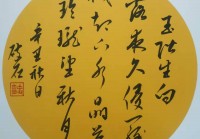 玉階生白
露夜久侵羅
襪却下水晶簾
玲瓏望秋月
辛丑秋日